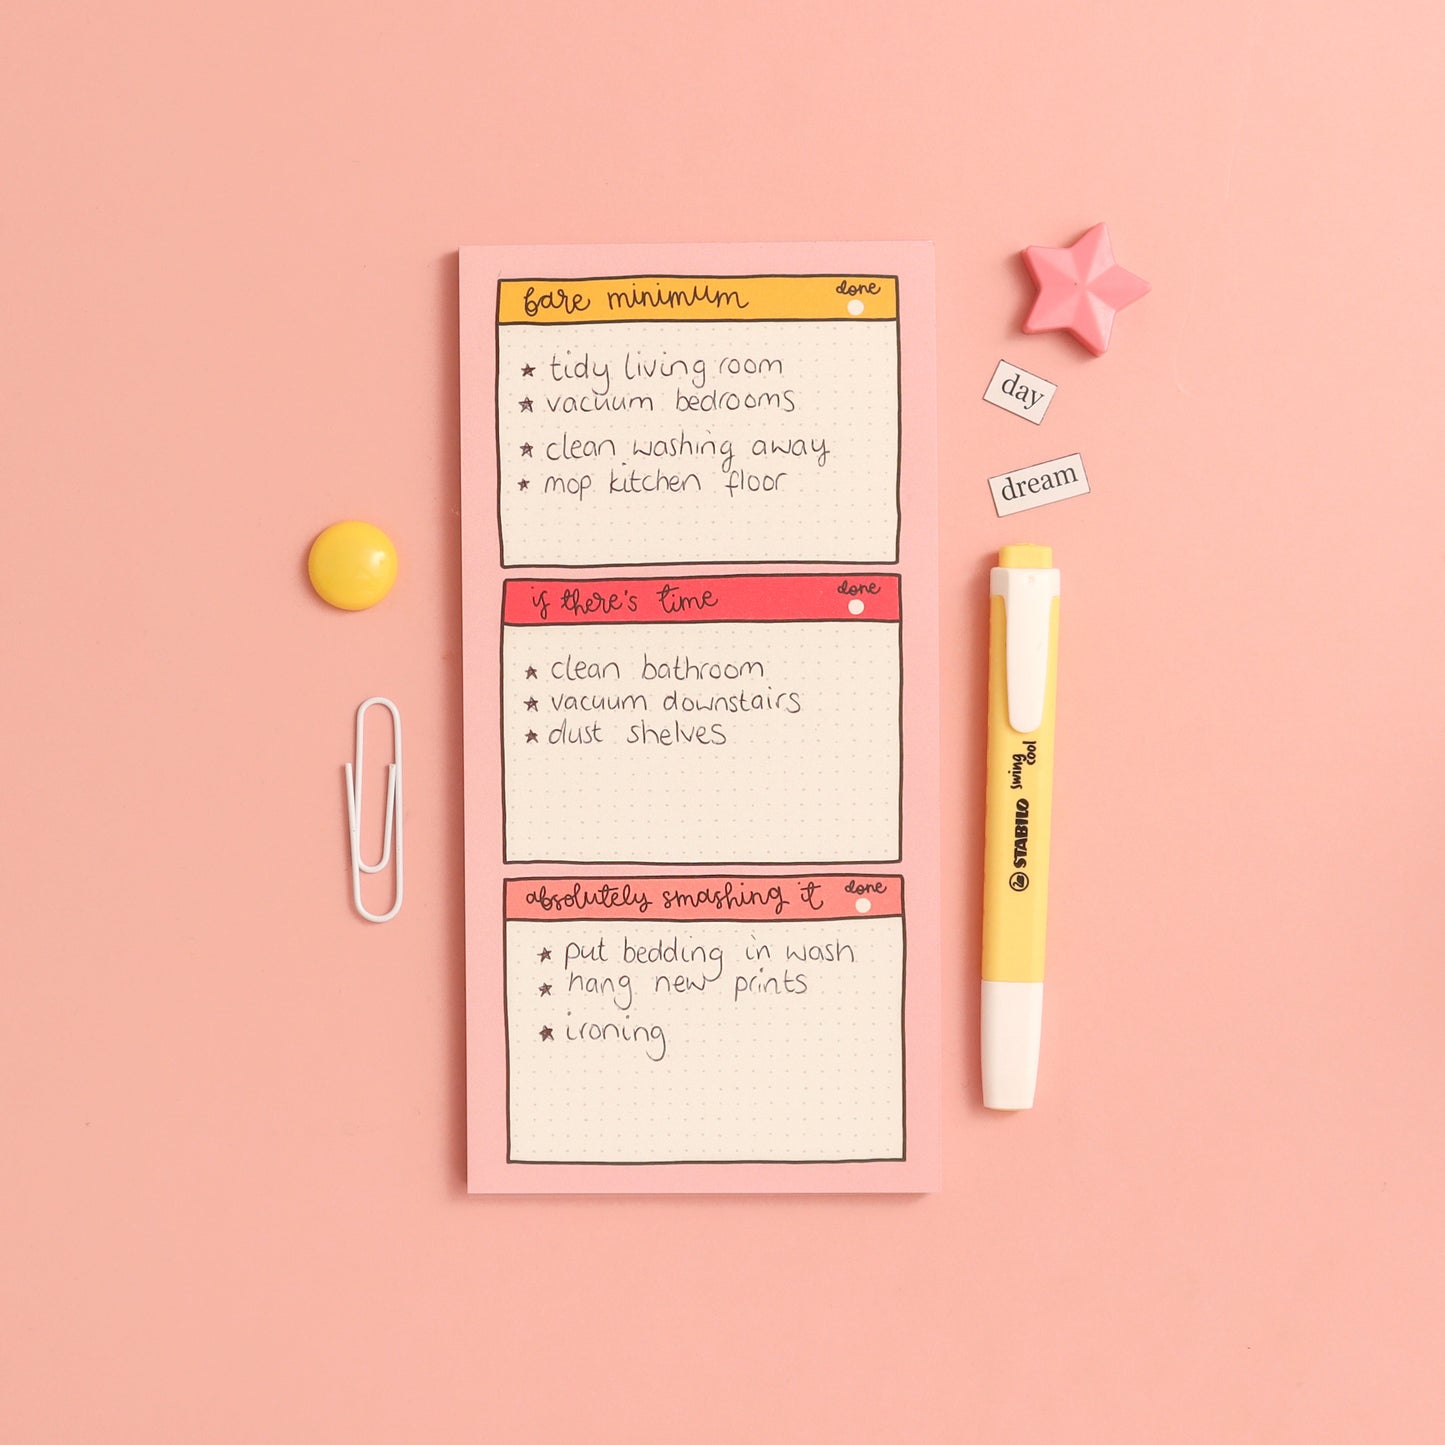 bare minimum done
tidy living room
vacuum bedrooms
clean washing away
mop kitchen floor
if there's time done
clean bathroom
vacuum downstairs
dust shelves
absolutely smashing it done
put bedding in wash
hang new prints
ironing
day
dream
STABILO swing cool